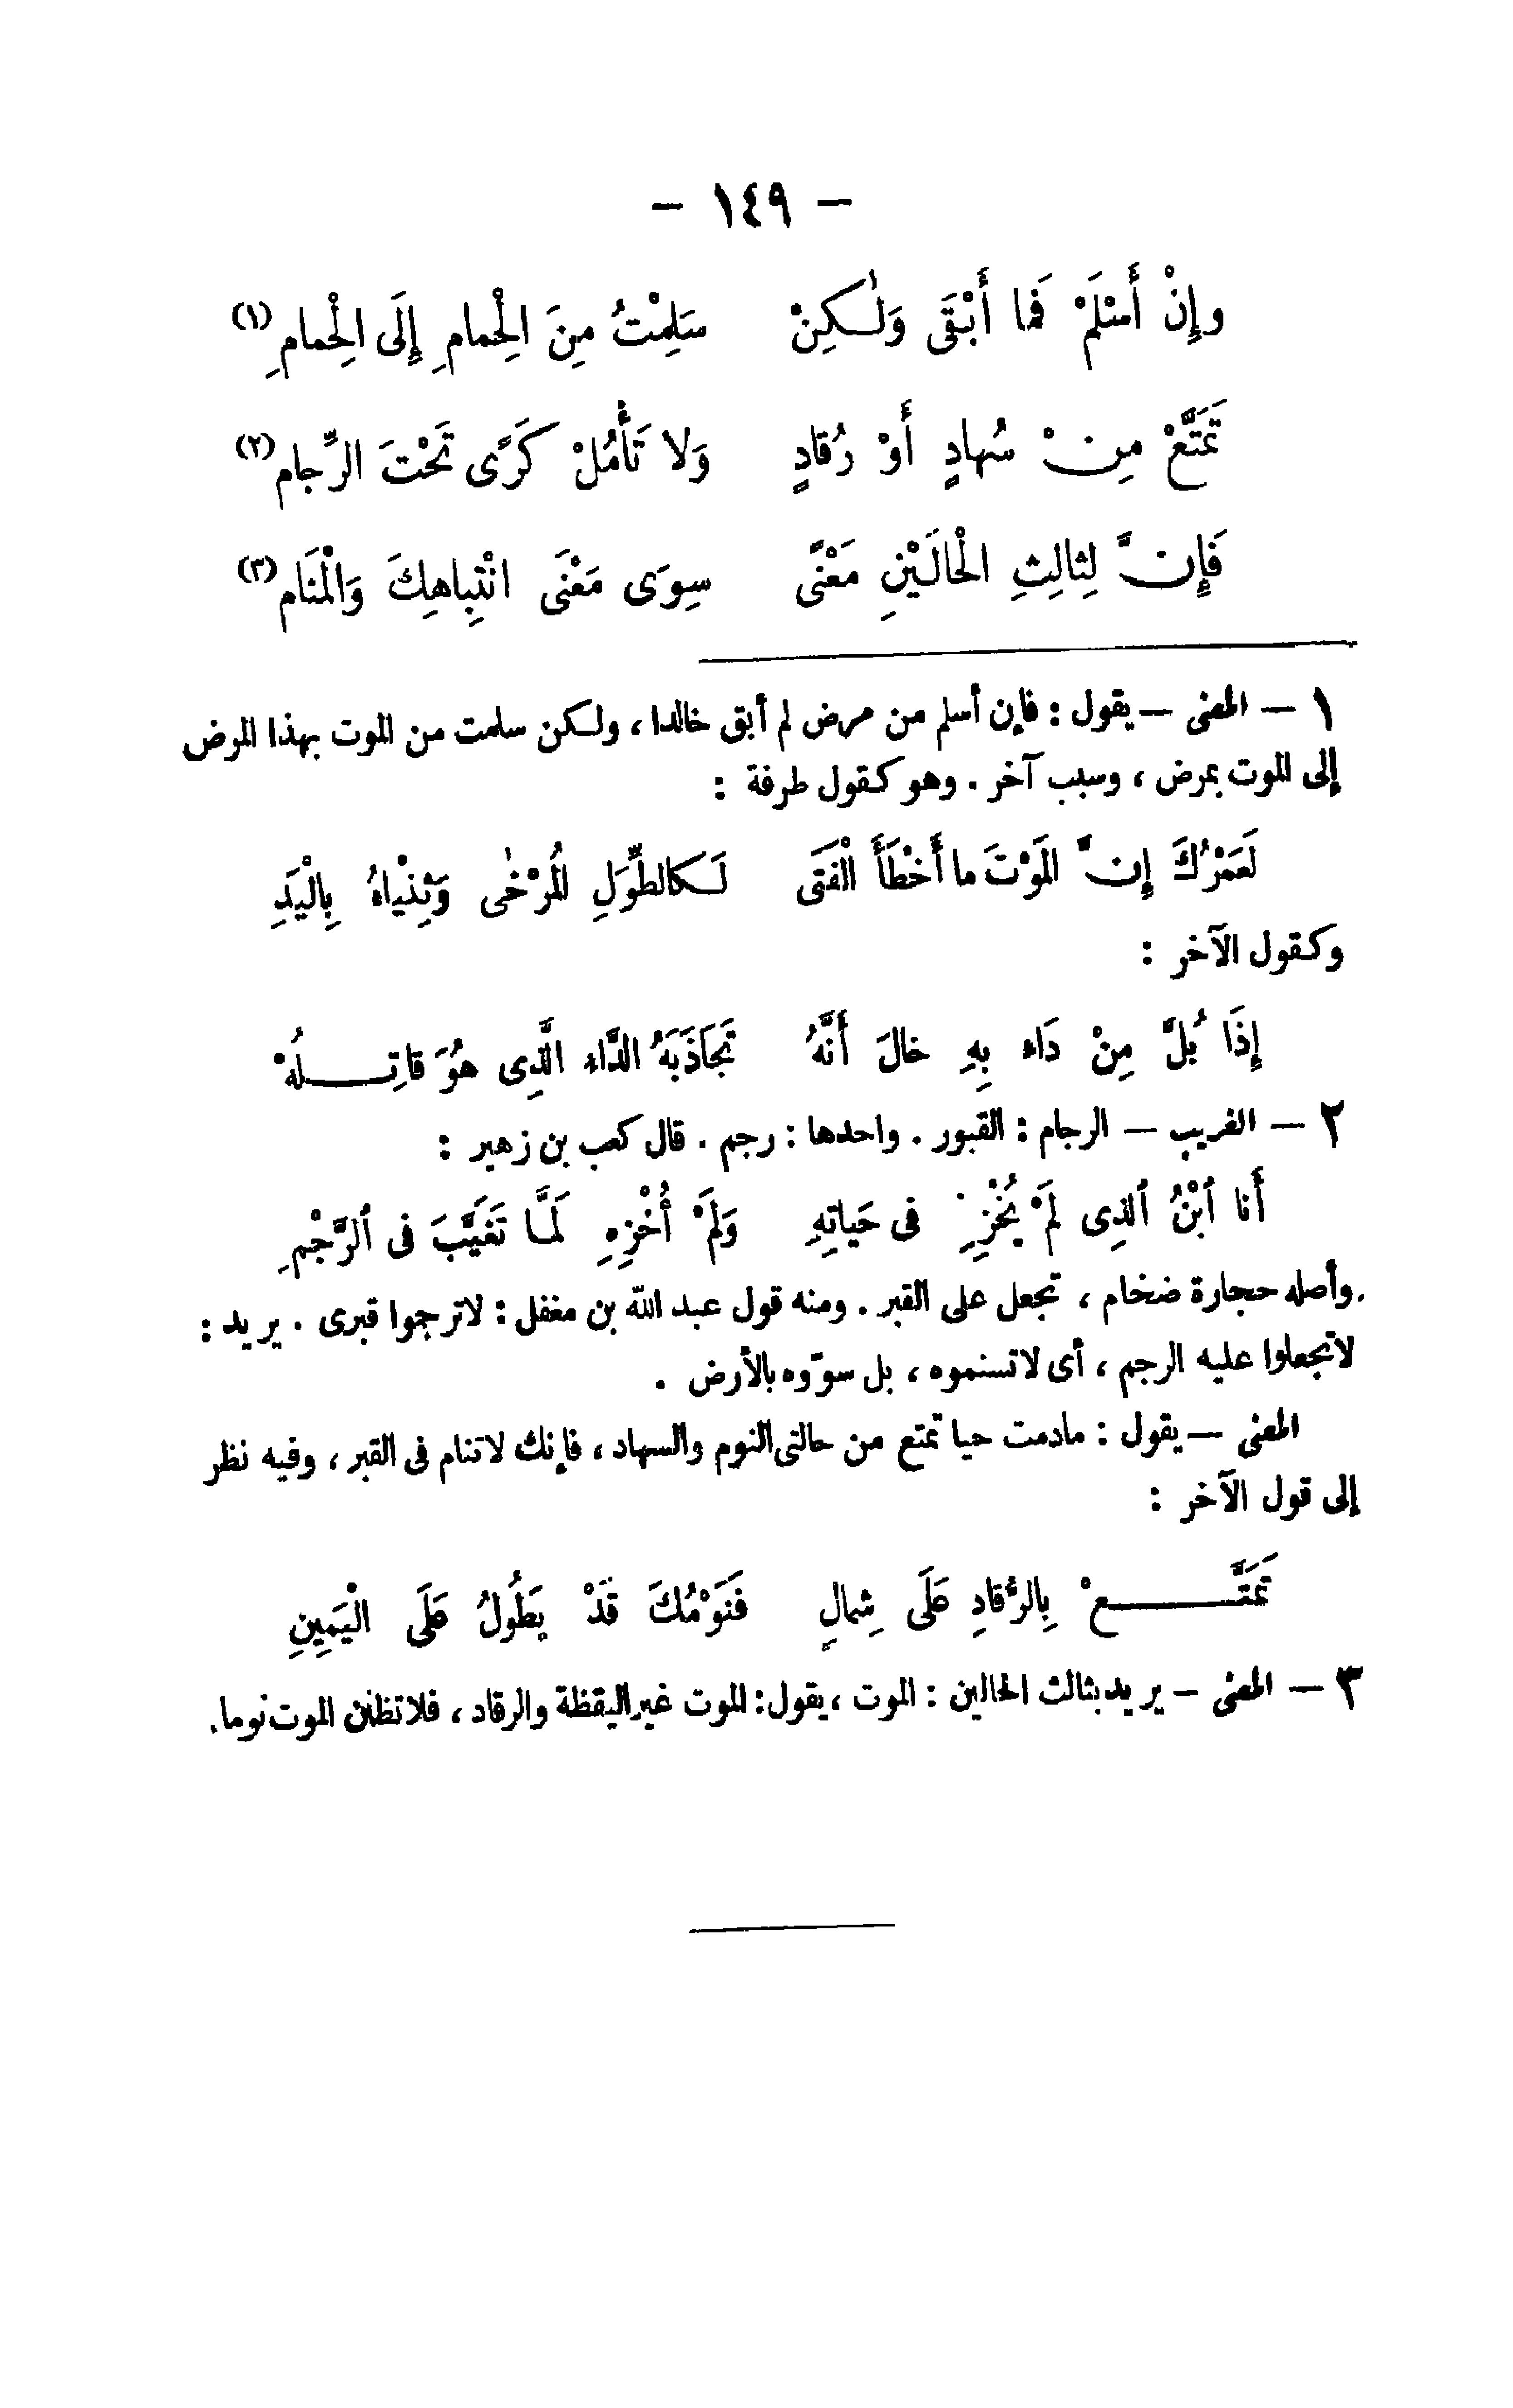 - ١٤٩ -
وإِنْ أَسْلَمْ فَما أَبْقَى وَلٰكِنْ سَلِمْتُ مِنَ الْحِمامِ إِلَى الْحِمامِ (١)
تَمَتَّعْ مِنْ سُهادٍ أَوْ رُقادٍ وَلا تَأْمُلْ كَرًى تَحْتَ الرِّجامِ (٢)
فَإِنَّ لِثالِثِ الْحالَيْنِ مَعْنًى سِوَى مَعْنَى انْتِباهِكَ وَالْمَنَامِ (٣)
١ – المعنى – يقول : فإن أسلم من مرض لم أبق خالدا ، ولكن سلمت من الموت بهذا المرض
إلى الموت بمرض ، وسبب آخر . وهو كقول طرفة :
لَعَمْرُكَ إِنَّ المَوْتَ ما أَخْطَأَ الْفَتَى لَكالطِّوَلِ المُرْخٰى وَثِنْياهُ بِالْيَدِ
وكقول الآخر :
إِذَا بُلَّ مِنْ دَاء بِهِ خالَ أَنَّهُ تَجَاذَبَهُ الدَّاء الَّذِى هُوَ قاتِلُهْ
٢ – الغريب – الرجام : القبور . واحدها : رجم . قال كعب بن زهير :
أَنا ٱبْنُ ٱلذِى لَمْ يُخْزِنِ فى حَياتِهِ وَلَمْ أُخْزِهِ لَمَّا تَغَيَّبَ فى ٱلرَّجْمِ
وأصله حجارة ضخام ، تجعل على القبر . ومنه قول عبد الله بن مغفل : لاترجموا قبرى . يريد :
لاتجعلوا عليه الرجم ، أى لاتسنموه ، بل سوّوه بالأرض .
المعنى – يقول : مادمت حيا تمتع من حالتى النوم والسهاد ، فإنك لاتنام فى القبر ، وفيه نظر
إلى قول الآخر :
تَمَتَّعْ بِالرُّقادِ عَلَى شِمالٍ فَنَوْمُكَ قَدْ يَطُولُ عَلَى الْيَمِينِ
٣ – المعنى – يريد بثالث الحالين : الموت ، يقول : الموت غير اليقظة والرقاد ، فلا تظنن الموت نوما.